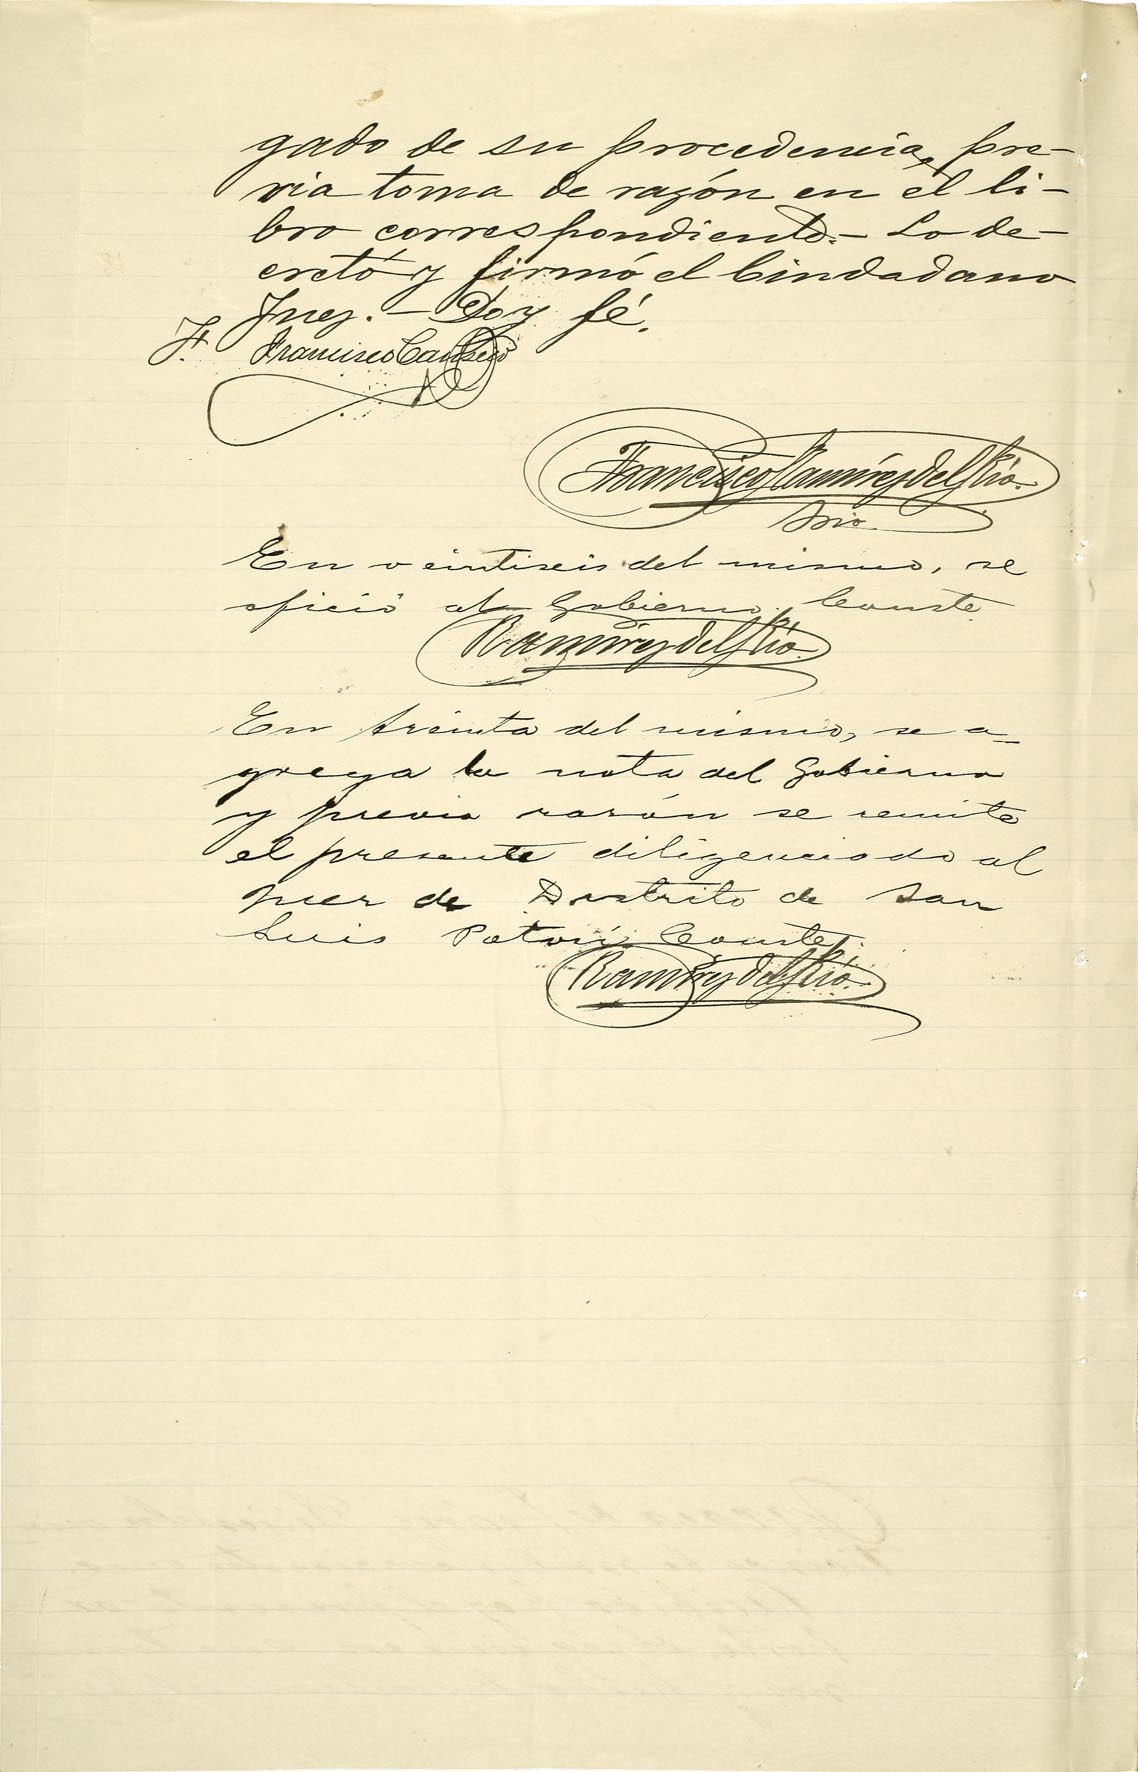 gado de su procedencia, pre-
via toma de razón en el li-
bro correspondiente.- Lo de-
cretó y firmó el Ciudadano
Juez.- Doy fé.
F. Francisco Canseco
Francisco Ramírez del Río.
Srio.
En veintiseis del mismo, se
ofició al Gobierno. Conste
Ramírez del Río.
En treinta del mismo, se a-
grega la nota del Gobierno
y previa razón se remite
el presente diligenciado al
Juez de Distrito de San
Luis Potosí. Conste.
Ramírez del Río.